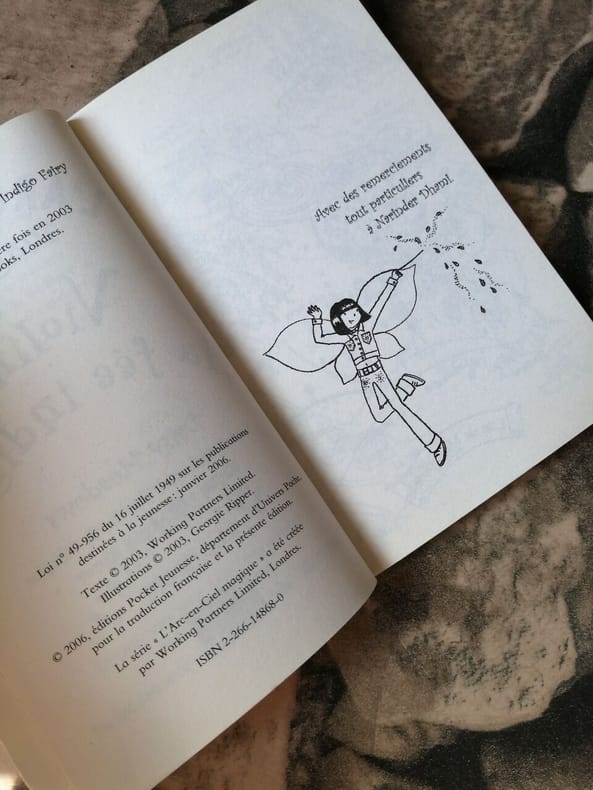 Indigo Fairy
re fois en 2003
oks, Londres.
Loi n° 49-956 du 16 juillet 1949 sur les publications
destinées à la jeunesse : janvier 2006.
Texte © 2003, Working Partners Limited.
Illustrations © 2003, Georgie Ripper.
© 2006, éditions Pocket Jeunesse, département d'Univers Poche,
pour la traduction française et la présente édition.
La série « L'Arc-en-Ciel magique » a été créée
par Working Partners Limited, Londres.
ISBN 2-266-14868-0
Avec des remerciements
tout particuliers
à Narinder Dhami